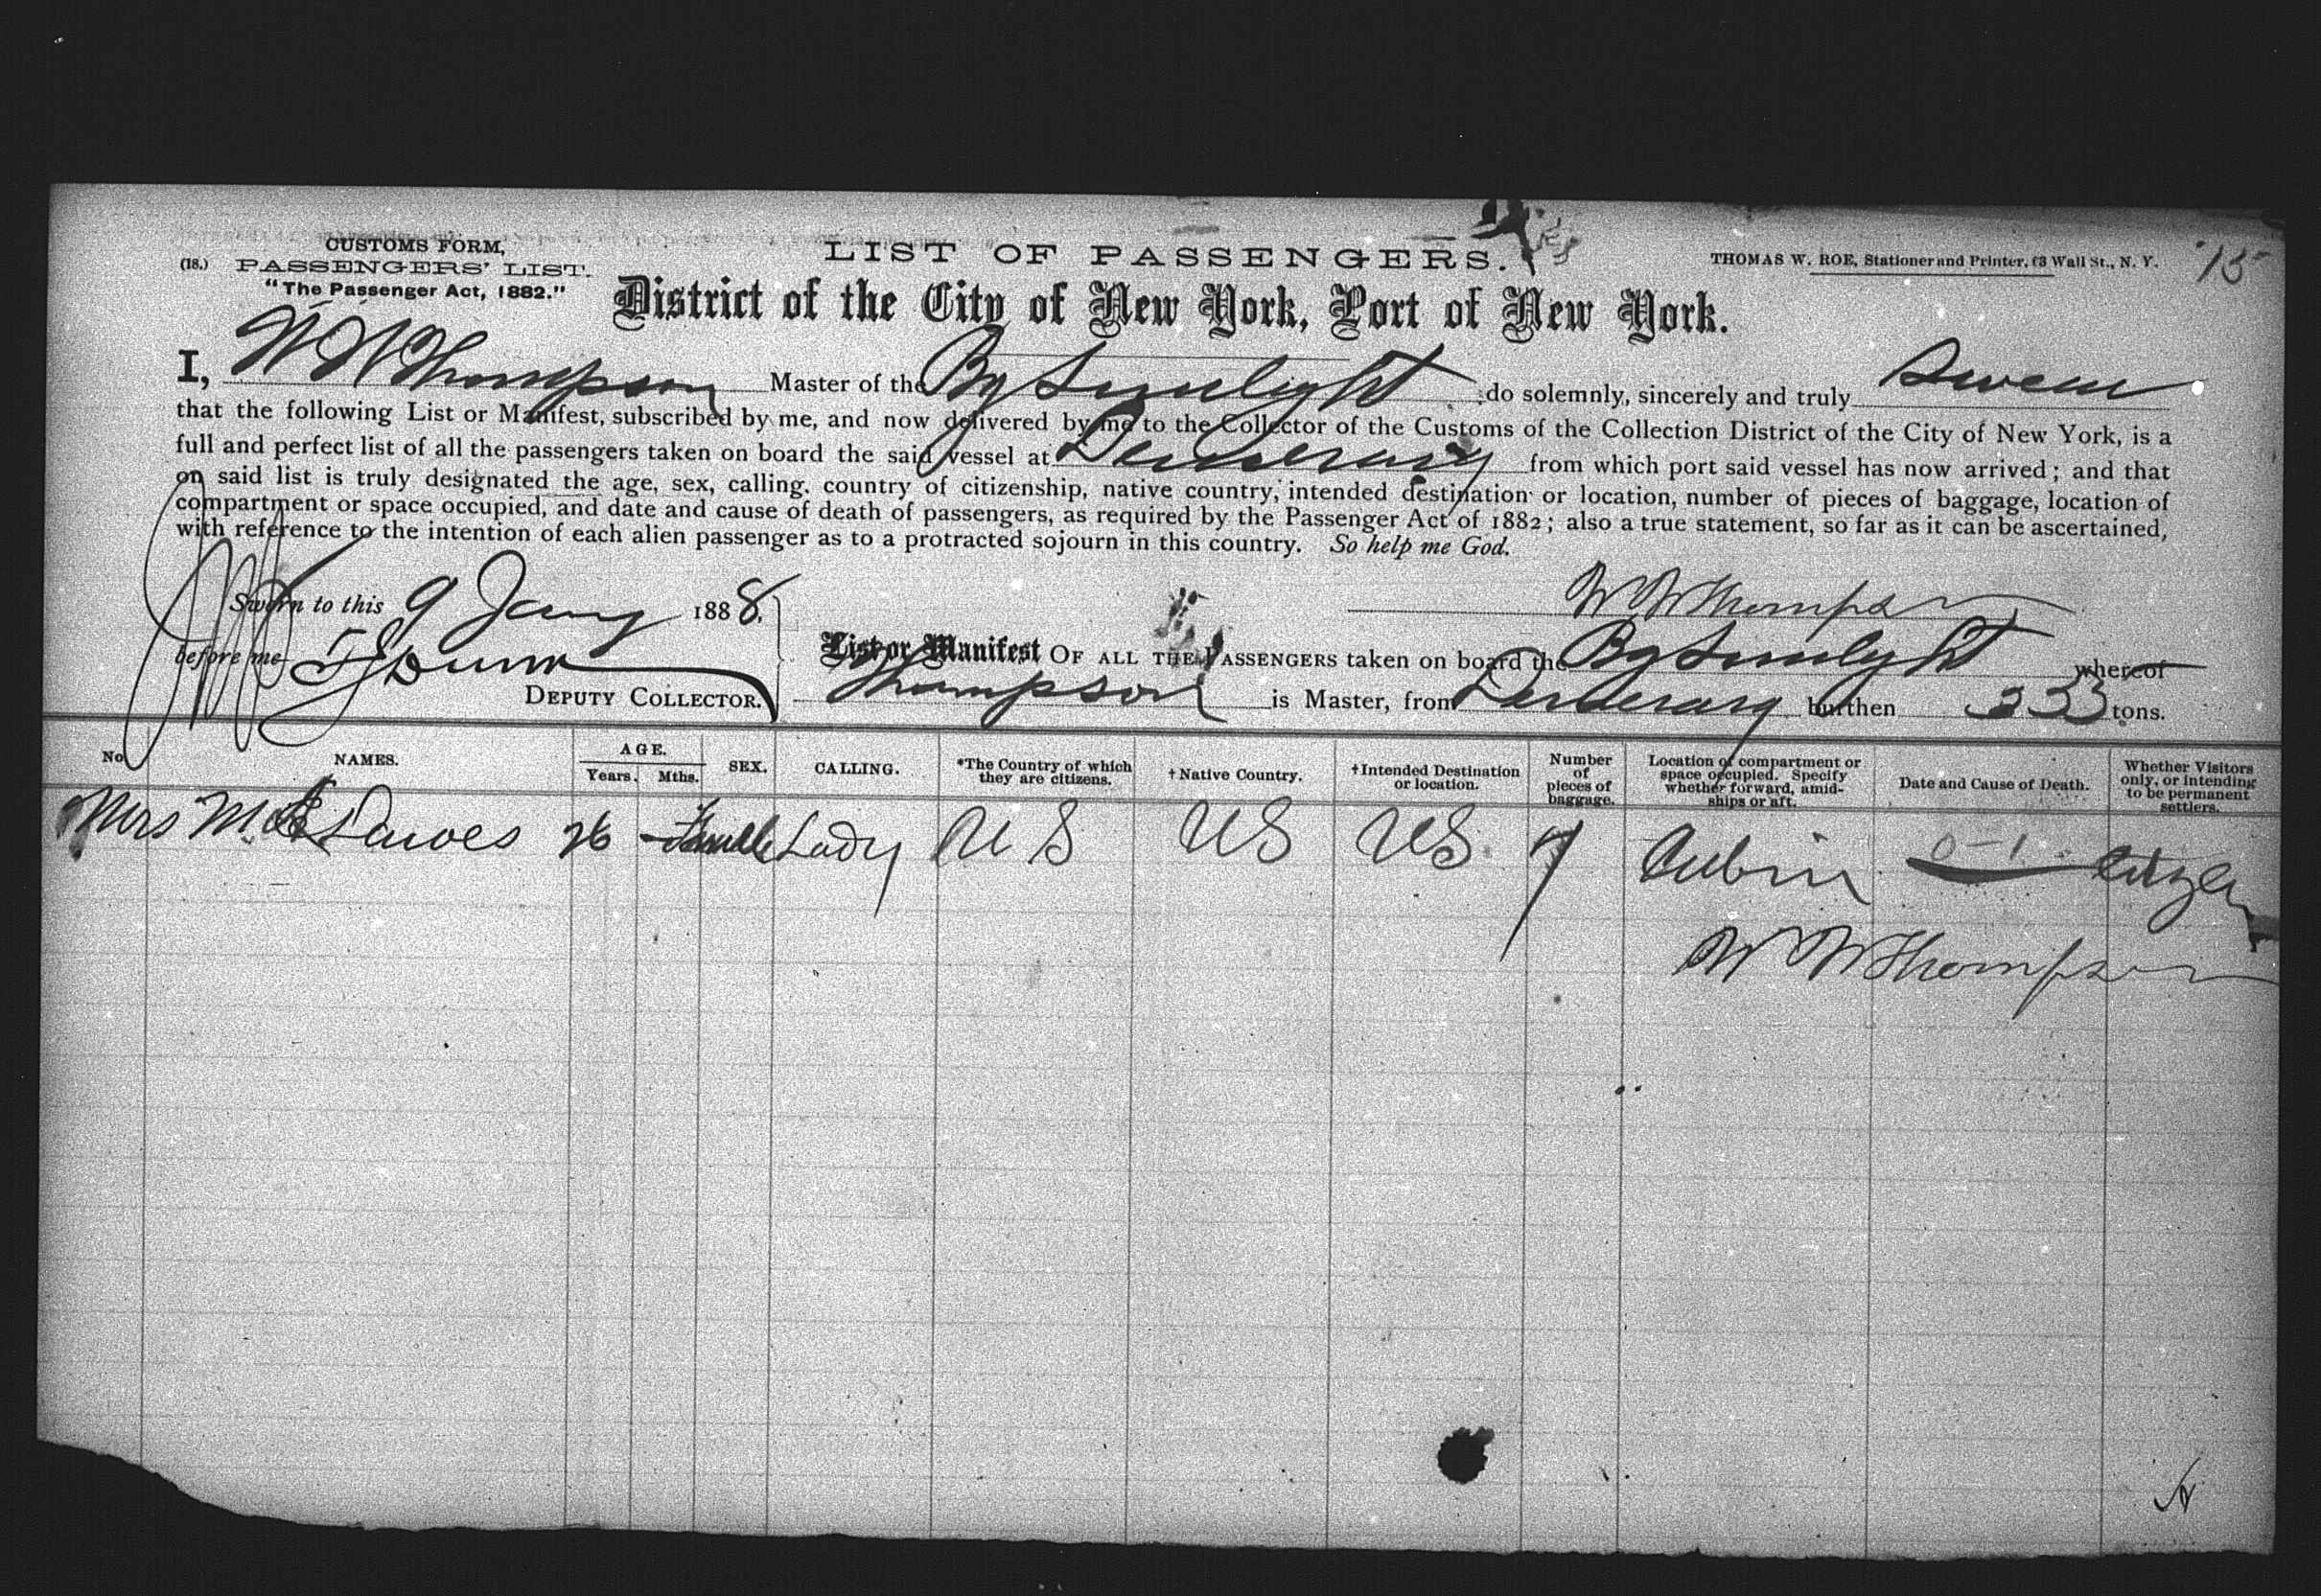 CUSTOMS FORM,
(18.) PASSENGERS' LIST.
"The Passenger Act, 1882."
LIST OF PASSENGERS.
THOMAS W. ROE, Stationer and Printer, 63 Wall St., N. Y.
15
District of the City of New York, Port of New York.
I, W W Thompson Master of the Bg Sunlight do solemnly, sincerely and truly Swear
that the following List or Manifest, subscribed by me, and now delivered by me to the Collector of the Customs of the Collection District of the City of New York, is a
full and perfect list of all the passengers taken on board the said vessel at Demerary from which port said vessel has now arrived; and that
on said list is truly designated the age, sex, calling, country of citizenship, native country, intended destination or location, number of pieces of baggage, location of
compartment or space occupied, and date and cause of death of passengers, as required by the Passenger Act of 1882; also a true statement, so far as it can be ascertained,
with reference to the intention of each alien passenger as to a protracted sojourn in this country. So help me God.
Sworn to this 9 Jany 1888,
W W Thompson
before me Dunn
DEPUTY COLLECTOR.
List or Manifest OF ALL THE PASSENGERS taken on board the Bg Sunlight whereof
Thompson is Master, from Demerary burthen 333 tons.
No. NAMES. AGE. Years. Mths. SEX. CALLING. *The Country of which they are citizens. †Native Country. †Intended Destination or location. Number of pieces of baggage. Location of compartment or space occupied. Specify whether forward, amidships or aft. Date and Cause of Death. Whether Visitors only, or intending to be permanent settlers.
Mrs M. Lawes 26 Female Lady U S US US 7 Cabin 0-1 Citizen
W W Thompson